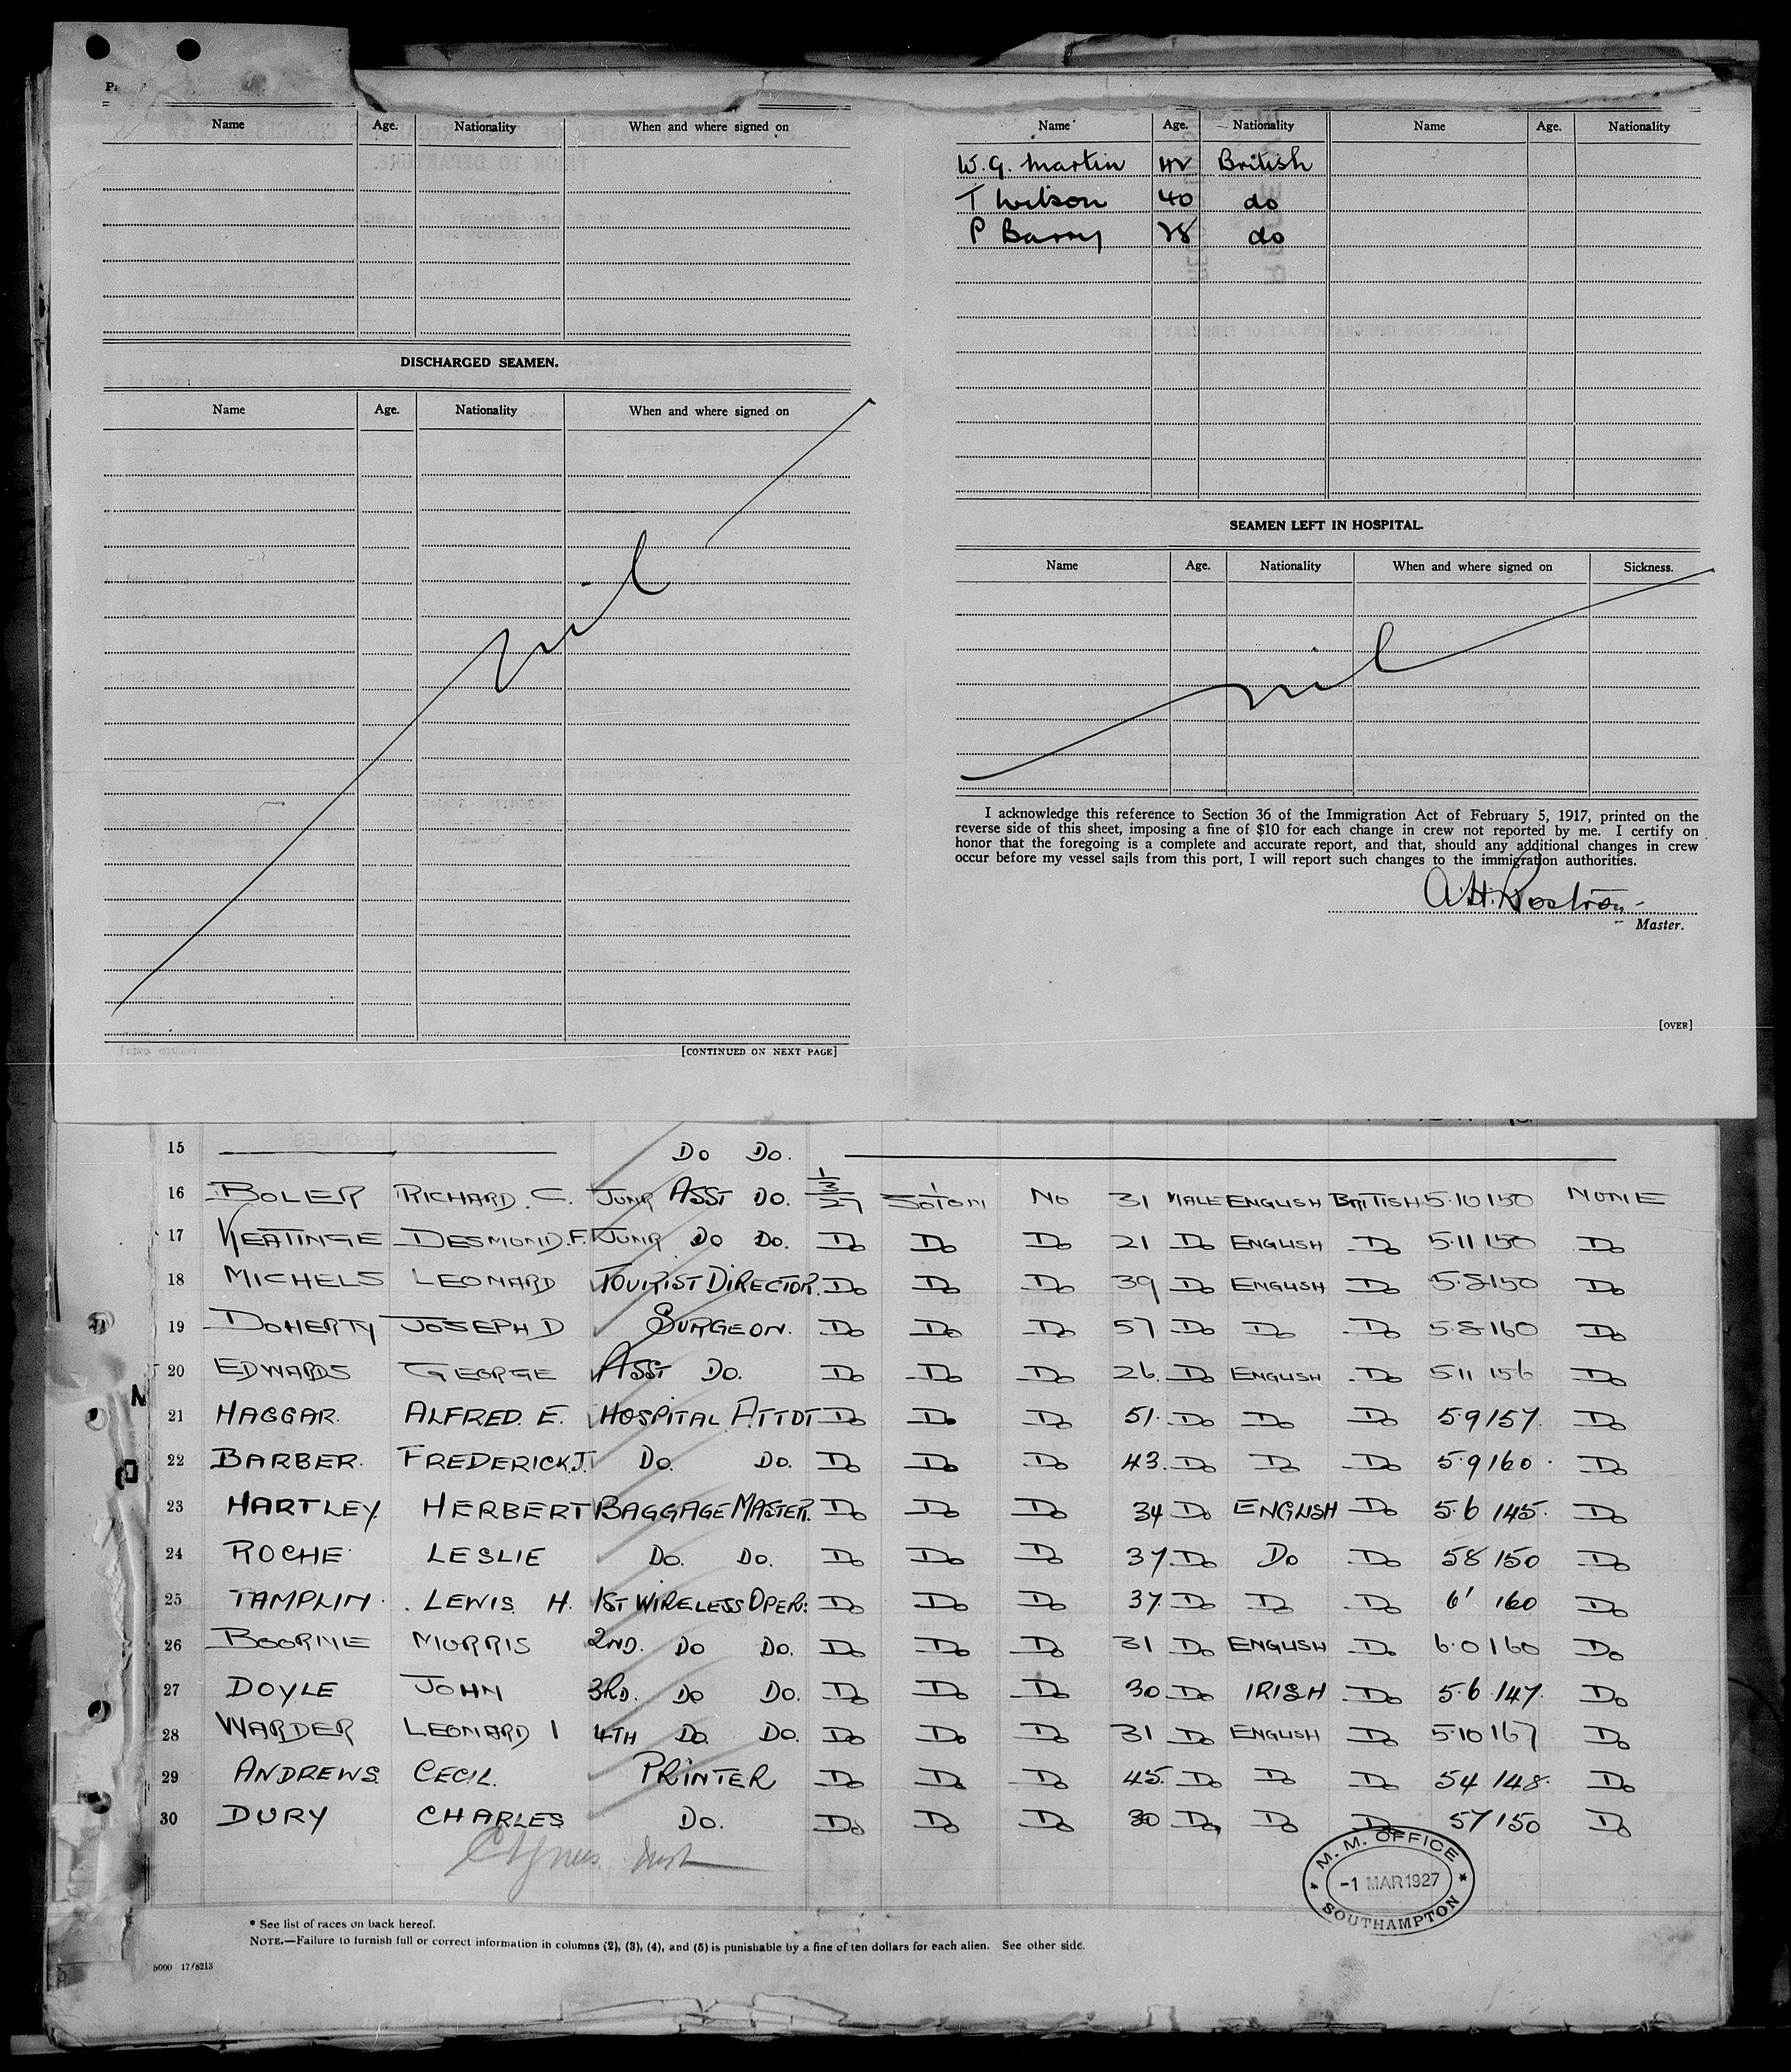 Name Age. Nationality When and where signed on
DISCHARGED SEAMEN.
Name Age. Nationality When and where signed on
nil
[CONTINUED ON NEXT PAGE]
Name Age. Nationality Name Age. Nationality
W. G. Martin British
T Wilson 40 do
P Barry 28 do
SEAMEN LEFT IN HOSPITAL.
Name Age. Nationality When and where signed on Sickness.
nil
I acknowledge this reference to Section 36 of the Immigration Act of February 5, 1917, printed on the
reverse side of this sheet, imposing a fine of $10 for each change in crew not reported by me. I certify on
honor that the foregoing is a complete and accurate report, and that, should any additional changes in crew
occur before my vessel sails from this port, I will report such changes to the immigration authorities.
A.H. Rostron
Master.
[OVER]
15 Do Do.
16 BOLER RICHARD. C. JUNR ASST DO. 1/3/27 SOTON NO 31 MALE ENGLISH BRITISH 5.10 150 NONE
17 KEATINGE DESMOND.F. JUNR Do Do. Do Do Do 21 Do ENGLISH Do 5.11 150 Do
18 MICHELS LEONARD TOURIST DIRECTOR. Do Do Do 39 Do ENGLISH Do 5.8 150 Do
19 DOHERTY JOSEPH D SURGEON. Do Do Do 57 Do Do Do 5.8 160 Do
20 EDWARDS GEORGE ASST Do. Do Do Do 26. Do ENGLISH Do 5 11 156 Do
21 HAGGAR. ALFRED. E. HOSPITAL ATTDT Do Do Do 51. Do Do Do 5.9 157. Do
22 BARBER. FREDERICK J. Do. Do. Do Do Do 43. Do Do Do 5.9 160. Do
23 HARTLEY. HERBERT BAGGAGE MASTER. Do Do Do 34 Do ENGLISH Do 5.6 145. Do
24 ROCHE LESLIE Do. Do. Do Do Do 37. Do Do Do 5 8 150 Do
25 TAMPLIN. LEWIS H. 1ST WIRELESS OPER: Do Do Do 37 Do Do Do 6' 160 Do
26 BOORNE MORRIS 2ND. Do Do. Do Do Do 31 Do ENGLISH Do 6.0 160 Do
27 DOYLE JOHN 3RD. Do Do. Do Do Do 30 Do IRISH Do 5.6 147. Do
28 WARDER LEONARD I 4TH Do. Do. Do Do Do 31 Do ENGLISH Do 5.10 167 Do
29 ANDREWS. CECIL. PRINTER Do Do Do 45. Do Do Do 5 4 148. Do
30 DURY CHARLES Do. Do Do Do 30 Do Do Do 5 7 150 Do
M. M. OFFICE
-1 MAR 1927
SOUTHAMPTON
* See list of races on back hereof.
NOTE.—Failure to furnish full or correct information in columns (2), (3), (4), and (5) is punishable by a fine of ten dollars for each alien. See other side.
5000 17/8213